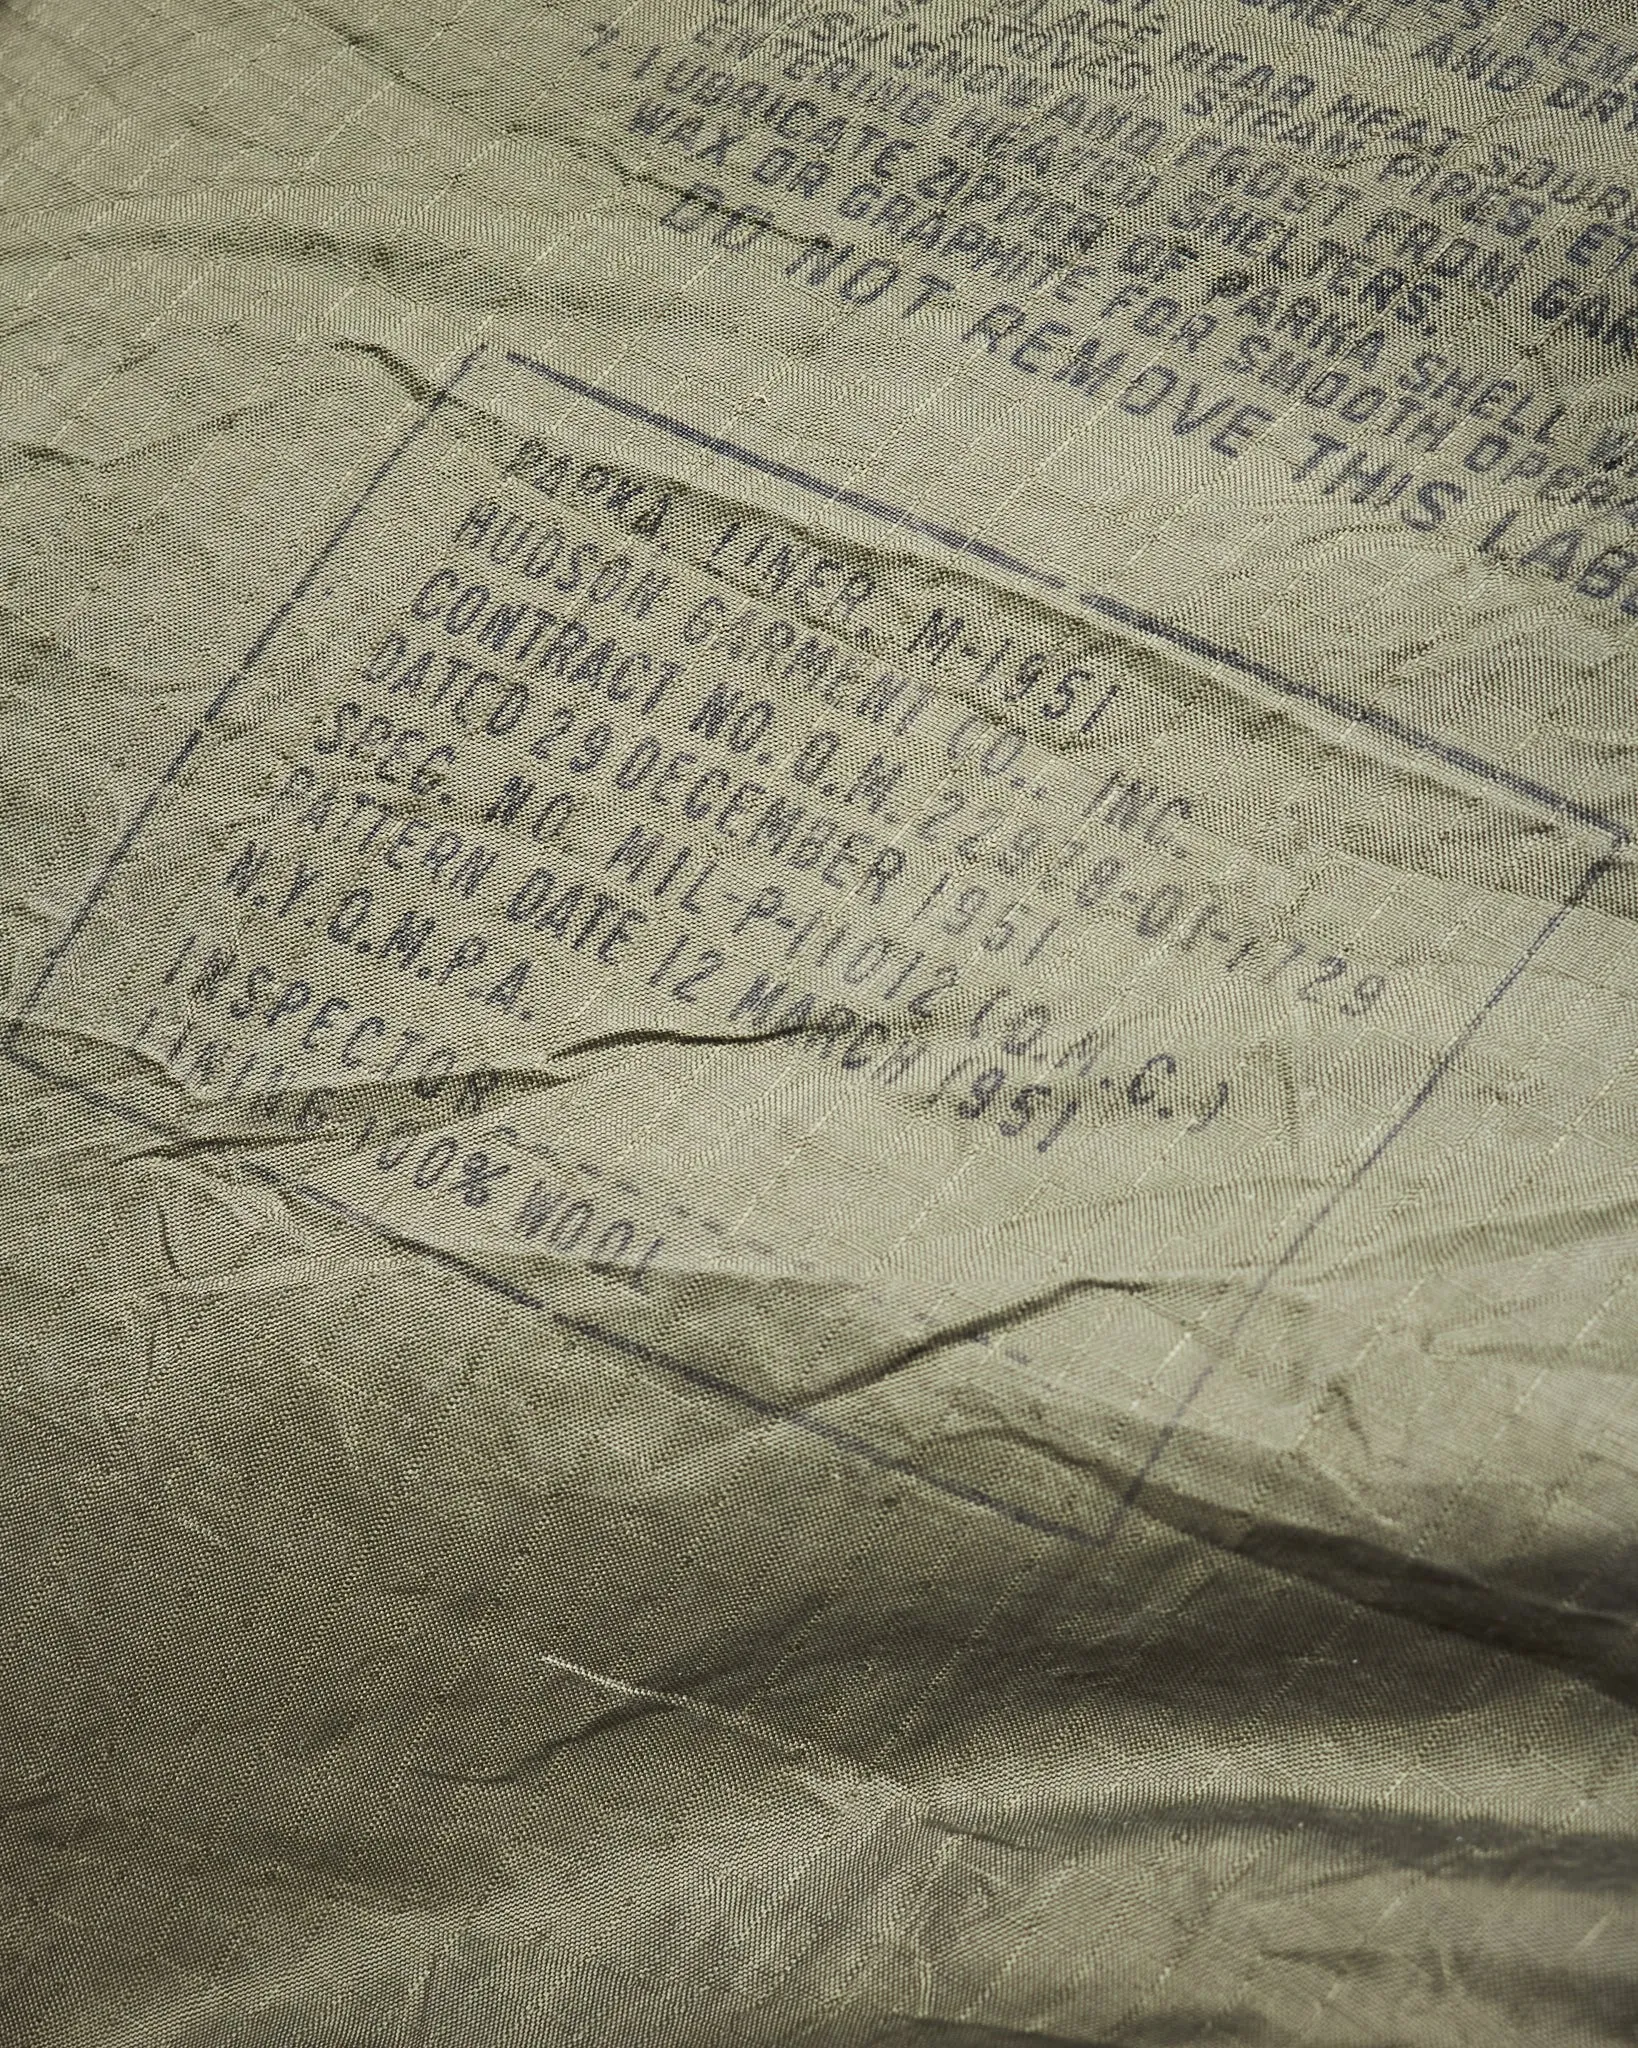 SHELL AND DRY
PLACE NEAR HEAT SOUR
STOVES STEAM PIPES, ET
SNOW AND FROST FROM GAR
ENTERING HEATED SHELTERS.
7. LUBRICATE ZIPPER OF PARKA SHELL
WAX OR GRAPHITE FOR SMOOTH OPER
DO NOT REMOVE THIS LABE
PARKA LINER M-1951
HUDSON GARMENT CO., INC.
CONTRACT NO. Q.M. 22978-OI-1729
DATED 29 DECEMBER 1951
SPEC. NO. MIL-P-11012 (Q.M.C.)
PATTERN DATE 12 MARCH 1951
N.Y.Q.M.P.A.
INSPECTOR
LINING 100% WOOL